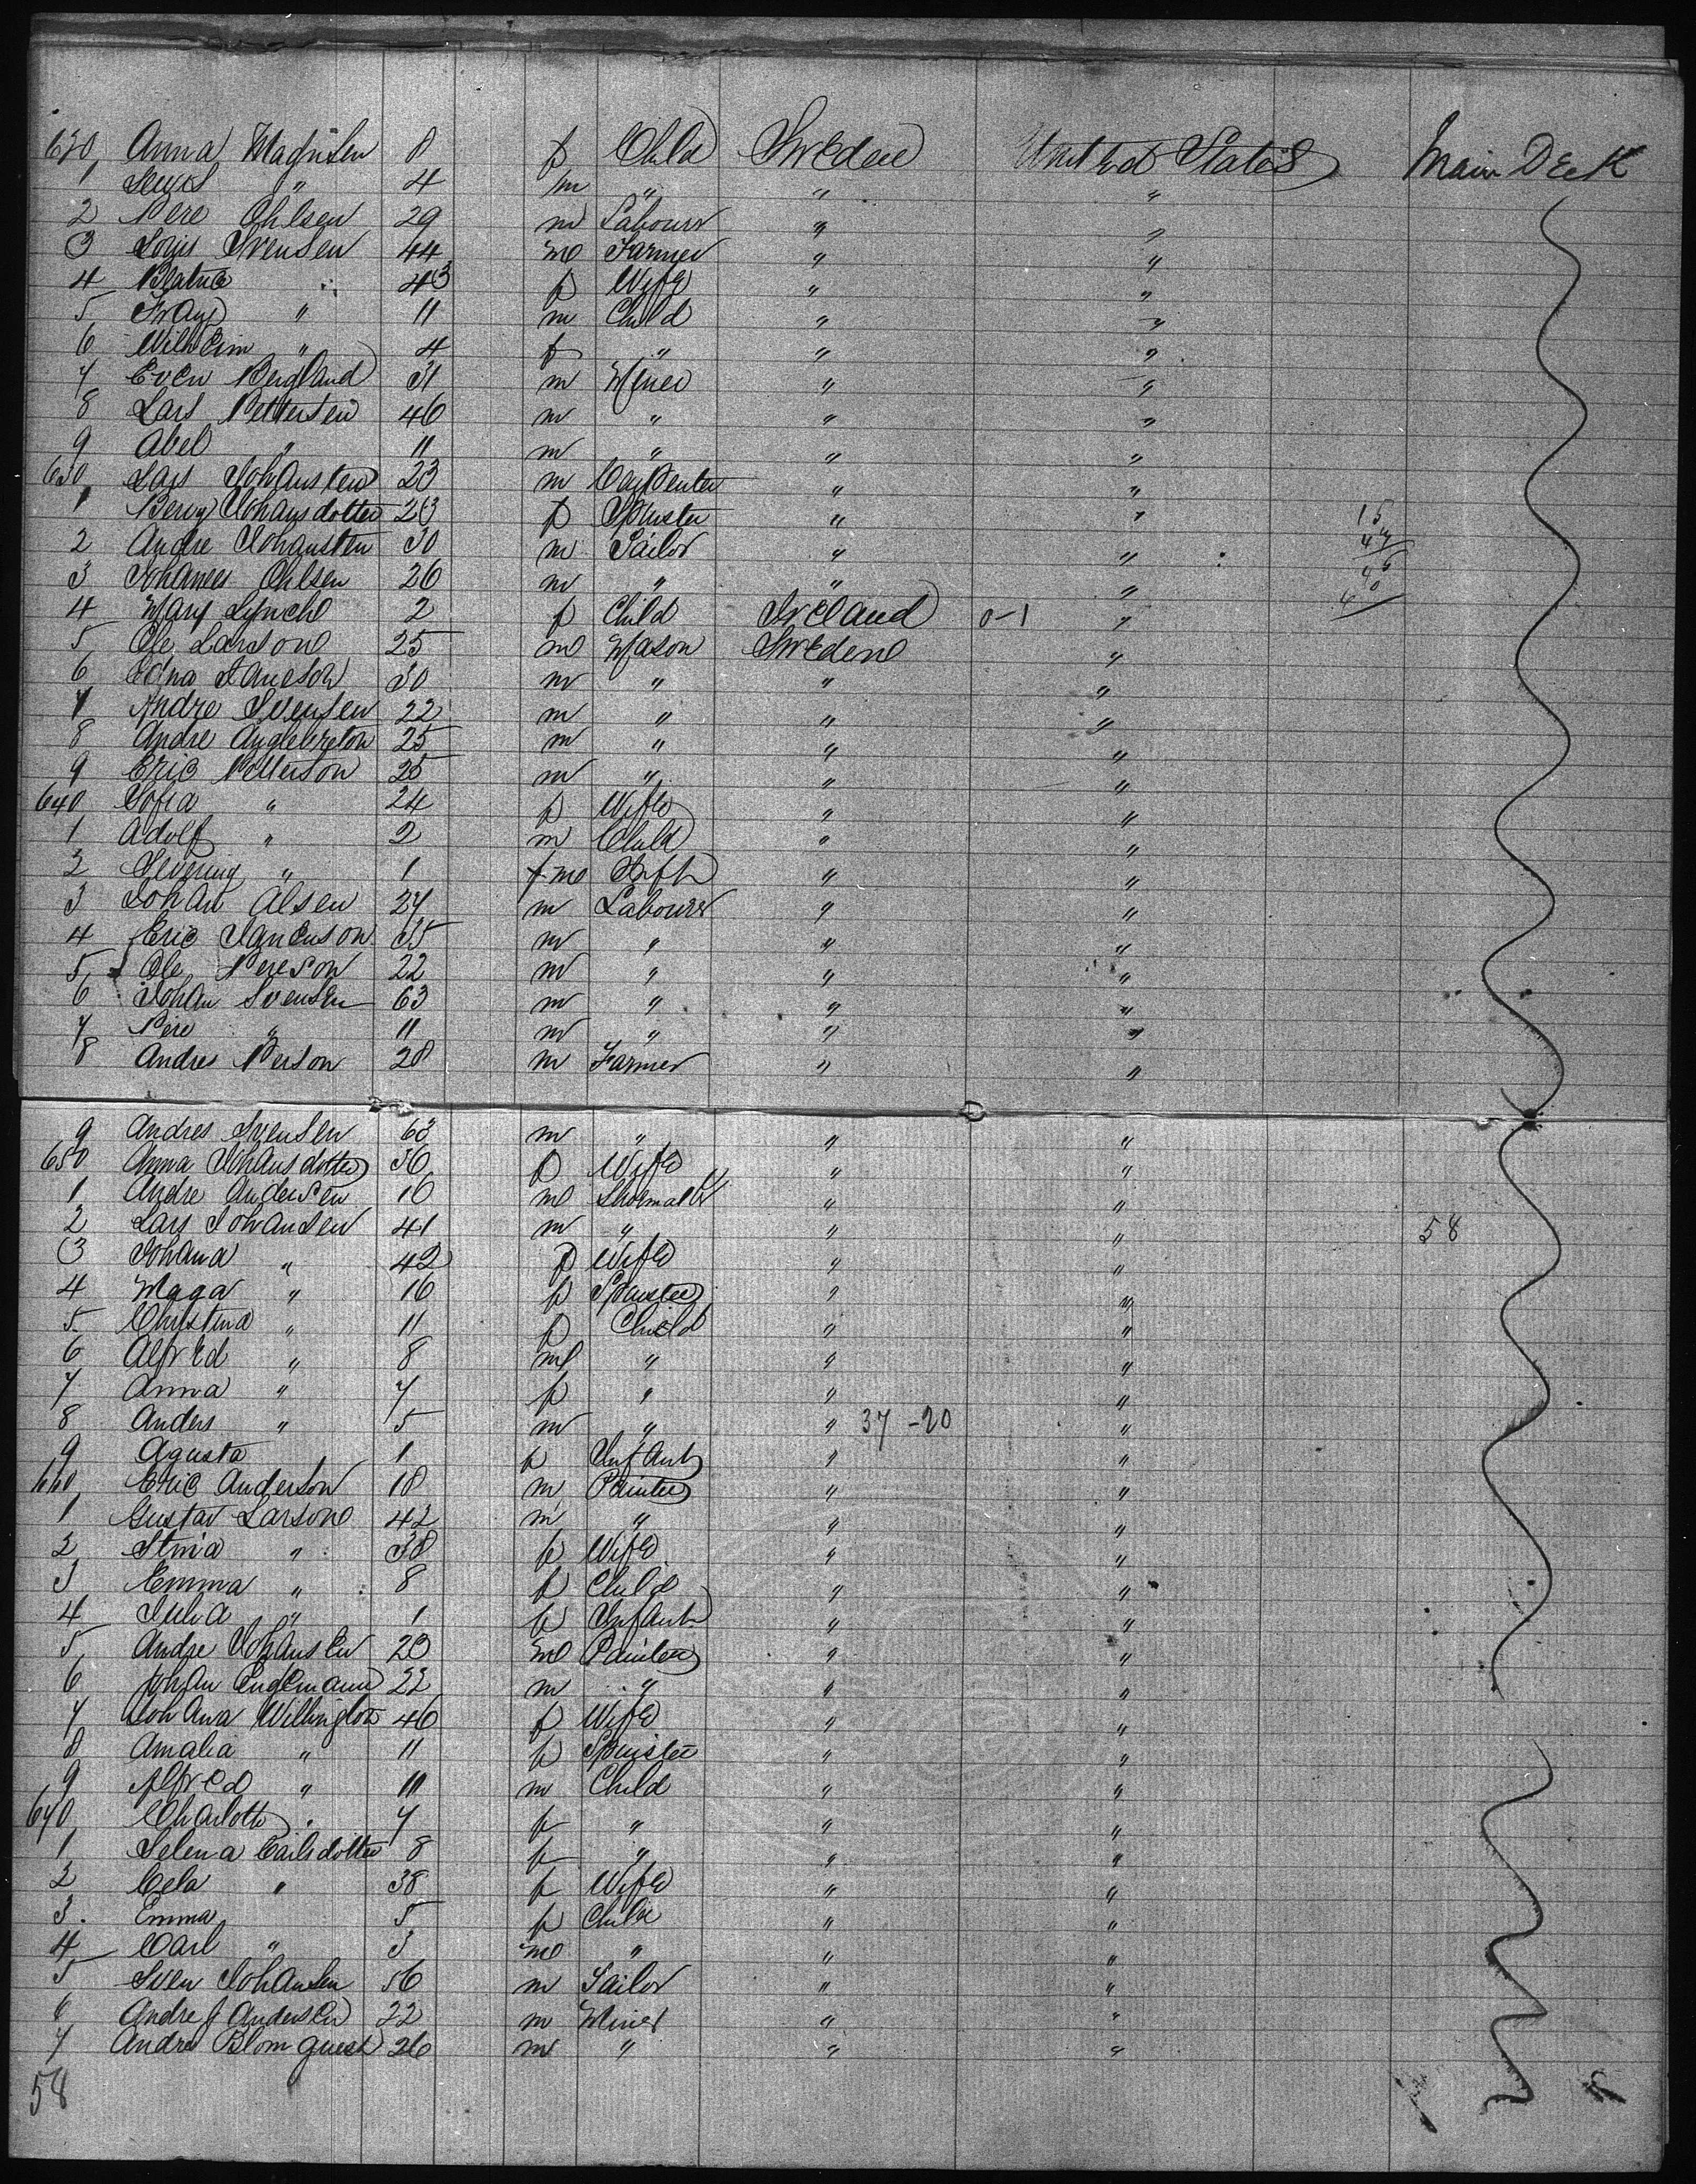 620 Anna Magnsen 8 f Child Sweden United States Main Deck
1 Lewis " 4 m " " "
2 Pere Ohlsen 29 m Labourr " "
3 Louis Svensen 44 m Farmer " "
4 " 43 f Wife " "
5 " 11 m Child " "
6 Wilhelm " 4 f " " "
7 Even Bergland 31 m Miner " "
8 Lars Pettersen 46 m " " "
9 Abel " 11 m " " "
630 Lars Johansten 23 m Carpenter " "
1 Johansdotter 23 f Spinster " " 15
2 Andre Johansten 30 m Sailor " "
3 Johanes Ohlsen 26 m " " "
4 Mary Lynch 2 f Child Ireland 0-1 "
5 Ole Larson 25 m Mason Sweden "
6 30 m " " "
7 Andre Svensen 22 m " " "
8 Andre 25 m " " "
9 Eric Petterson 25 m " " "
640 Sofia " 24 f Wife " "
1 Adolf " 2 m Child " "
2 " 1 m " "
3 Johan Alsen 27 m Labourer " "
4 Eric 35 m " " "
5 Ole Pereson 22 m " " "
6 Johan Svensen 63 m " " "
7 Pere " 11 m " " "
8 Andres Person 28 m Farmer " "
9 Andres Svensen 63 m " " "
650 Anna Johansdotter 36 f Wife " "
1 Andre Andersen 16 m Shoemaker " "
2 Lars Johansen 41 m " " " 58
3 Johana " 42 f Wife " "
4 Maga " 16 f Spinster " "
5 Christina " 11 f Child " "
6 Alfred " 8 m " " "
7 Anna " 7 f " " "
8 Anders " 5 m " " 37-20 "
9 Agusta 1 f Infant " "
660 Eric Anderson 18 m Painter " "
1 Gustav Larson 42 m " " "
2 Stina " 38 f Wife " "
3 Emma " 8 f Child " "
4 Julia " 1 f Infant " "
5 Andre Johansen 20 m Painter " "
6 Johan Englemann 22 m " " "
7 Johana Willington 46 f Wife " "
8 Amalia " 11 f Spinster " "
9 Alfred " 11 m Child " "
670 Charlott " 7 f " " "
1 Selena Carlsdotter 8 f " " "
2 Cela " 38 f Wife " "
3 Emma 5 f Child " "
4 Carl " 3 m " " "
5 Sven Johansen 56 m Sailor " "
6 Andre J Andersen 22 m Miner " "
7 Andre Blomguest 26 m " " "
58